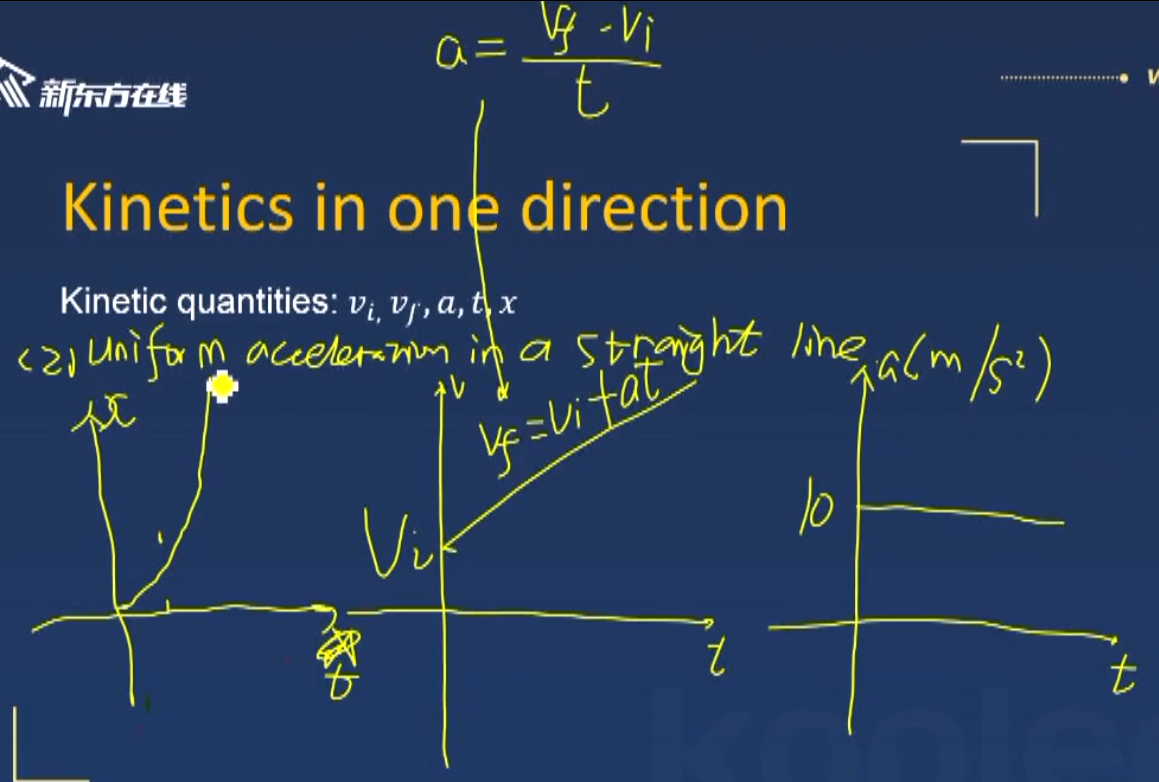 a = (vf - vi) / t
新东方在线
Kinetics in one direction
Kinetic quantities: vi, vf, a, t, x
(2) Uniform acceleration in a straight line
x
v
vf = vi + at
a(m/s²)
Vi
10
t
t
t
koolea